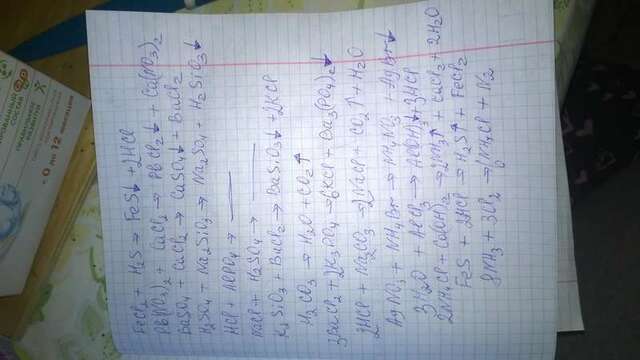 FeCl₂ + H₂S → FeS↓ + 2HCl
Pb(NO₃)₂ + CaCl₂ → PbCl₂↓ + Ca(NO₃)₂
BaSO₄ + CuCl₂ → CuSO₄ + BaCl₂
H₂SO₄ + Na₂SiO₃ → Na₂SO₄ + H₂SiO₃↓
NaCl + H₂SO₄ →
K₂SiO₃ + BaCl₂ → BaSiO₃↓ + 2KCl
H₂CO₃ → H₂O + CO₂↑
3BaCl₂ + 2K₃PO₄ → 6KCl + Ba₃(PO₄)₂↓
2HCl + Na₂CO₃ → 2NaCl + CO₂↑ + H₂O
AgNO₃ + NH₄Br → NH₄NO₃ + AgBr↓
3H₂O + AlCl₃ → Al(OH)₃↓ + 3HCl
2NH₄Cl + Ca(OH)₂ → 2NH₃↑ + CaCl₂ + 2H₂O
FeS + 2HCl → H₂S↑ + FeCl₂
8NH₃ + 3Cl₂ → 6NH₄Cl + N₂